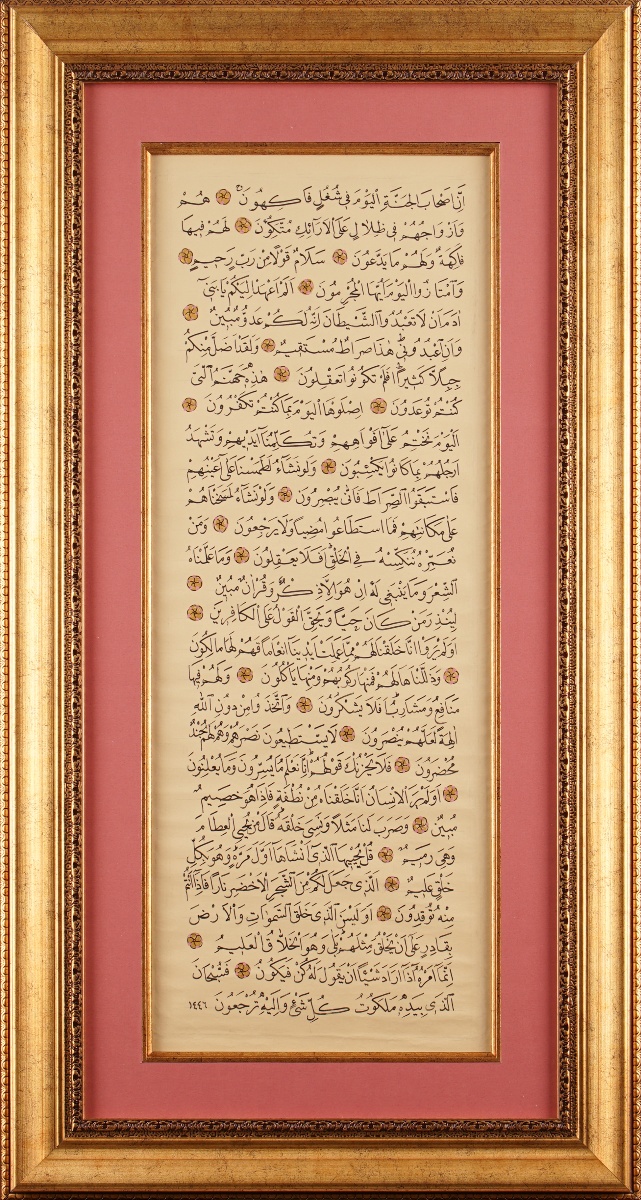 اِنَّ اَصْحَابَ الْجَنَّةِ الْيَوْمَ فِي شُغُلٍ فَاكِهُونَ ۝ هُمْ
وَاَزْوَاجُهُمْ فِي ظِلَالٍ عَلَى الْاَرَائِكِ مُتَّكِؤُنَ ۝ لَهُمْ فِيهَا
فَاكِهَةٌ وَلَهُمْ مَا يَدَّعُونَ ۝ سَلَامٌ قَوْلًا مِنْ رَبٍّ رَحِيمٍ ۝
وَامْتَازُوا الْيَوْمَ اَيُّهَا الْمُجْرِمُونَ ۝ اَلَمْ اَعْهَدْ اِلَيْكُمْ يَا بَنِي
اٰدَمَ اَنْ لَا تَعْبُدُوا الشَّيْطَانَ اِنَّهُ لَكُمْ عَدُوٌّ مُبِينٌ ۝
وَاَنِ اعْبُدُونِي هٰذَا صِرَاطٌ مُسْتَقِيمٌ ۝ وَلَقَدْ اَضَلَّ مِنْكُمْ
جِبِلًّا كَثِيرًا اَفَلَمْ تَكُونُوا تَعْقِلُونَ ۝ هٰذِهِ جَهَنَّمُ الَّتِي
كُنْتُمْ تُوعَدُونَ ۝ اِصْلَوْهَا الْيَوْمَ بِمَا كُنْتُمْ تَكْفُرُونَ ۝
اَلْيَوْمَ نَخْتِمُ عَلَى اَفْوَاهِهِمْ وَتُكَلِّمُنَا اَيْدِيهِمْ وَتَشْهَدُ
اَرْجُلُهُمْ بِمَا كَانُوا يَكْسِبُونَ ۝ وَلَوْ نَشَاءُ لَطَمَسْنَا عَلَى اَعْيُنِهِمْ
فَاسْتَبَقُوا الصِّرَاطَ فَاَنَّى يُبْصِرُونَ ۝ وَلَوْ نَشَاءُ لَمَسَخْنَاهُمْ
عَلَى مَكَانَتِهِمْ فَمَا اسْتَطَاعُوا مُضِيًّا وَلَا يَرْجِعُونَ ۝ وَمَنْ
نُعَمِّرْهُ نُنَكِّسْهُ فِي الْخَلْقِ اَفَلَا يَعْقِلُونَ ۝ وَمَا عَلَّمْنَاهُ
الشِّعْرَ وَمَا يَنْبَغِي لَهُ اِنْ هُوَ اِلَّا ذِكْرٌ وَقُرْاٰنٌ مُبِينٌ ۝
لِيُنْذِرَ مَنْ كَانَ حَيًّا وَيَحِقَّ الْقَوْلُ عَلَى الْكَافِرِينَ ۝
اَوَلَمْ يَرَوْا اَنَّا خَلَقْنَا لَهُمْ مِمَّا عَمِلَتْ اَيْدِينَا اَنْعَامًا فَهُمْ لَهَا مَالِكُونَ
۝ وَذَلَّلْنَاهَا لَهُمْ فَمِنْهَا رَكُوبُهُمْ وَمِنْهَا يَاْكُلُونَ ۝ وَلَهُمْ فِيهَا
مَنَافِعُ وَمَشَارِبُ اَفَلَا يَشْكُرُونَ ۝ وَاتَّخَذُوا مِنْ دُونِ اللّٰهِ
اٰلِهَةً لَعَلَّهُمْ يُنْصَرُونَ ۝ لَا يَسْتَطِيعُونَ نَصْرَهُمْ وَهُمْ لَهُمْ جُنْدٌ
مُحْضَرُونَ ۝ فَلَا يَحْزُنْكَ قَوْلُهُمْ اِنَّا نَعْلَمُ مَا يُسِرُّونَ وَمَا يُعْلِنُونَ
۝ اَوَلَمْ يَرَ الْاِنْسَانُ اَنَّا خَلَقْنَاهُ مِنْ نُطْفَةٍ فَاِذَا هُوَ خَصِيمٌ
مُبِينٌ ۝ وَضَرَبَ لَنَا مَثَلًا وَنَسِيَ خَلْقَهُ قَالَ مَنْ يُحْيِي الْعِظَامَ
وَهِيَ رَمِيمٌ ۝ قُلْ يُحْيِيهَا الَّذِي اَنْشَاَهَا اَوَّلَ مَرَّةٍ وَهُوَ بِكُلِّ
خَلْقٍ عَلِيمٌ ۝ اَلَّذِي جَعَلَ لَكُمْ مِنَ الشَّجَرِ الْاَخْضَرِ نَارًا فَاِذَا اَنْتُمْ
مِنْهُ تُوقِدُونَ ۝ اَوَلَيْسَ الَّذِي خَلَقَ السَّمٰوَاتِ وَالْاَرْضَ
بِقَادِرٍ عَلَى اَنْ يَخْلُقَ مِثْلَهُمْ بَلَى وَهُوَ الْخَلَّاقُ الْعَلِيمُ ۝
اِنَّمَا اَمْرُهُ اِذَا اَرَادَ شَيْئًا اَنْ يَقُولَ لَهُ كُنْ فَيَكُونُ ۝ فَسُبْحَانَ
الَّذِي بِيَدِهِ مَلَكُوتُ كُلِّ شَيْءٍ وَاِلَيْهِ تُرْجَعُونَ ١٤٤٦